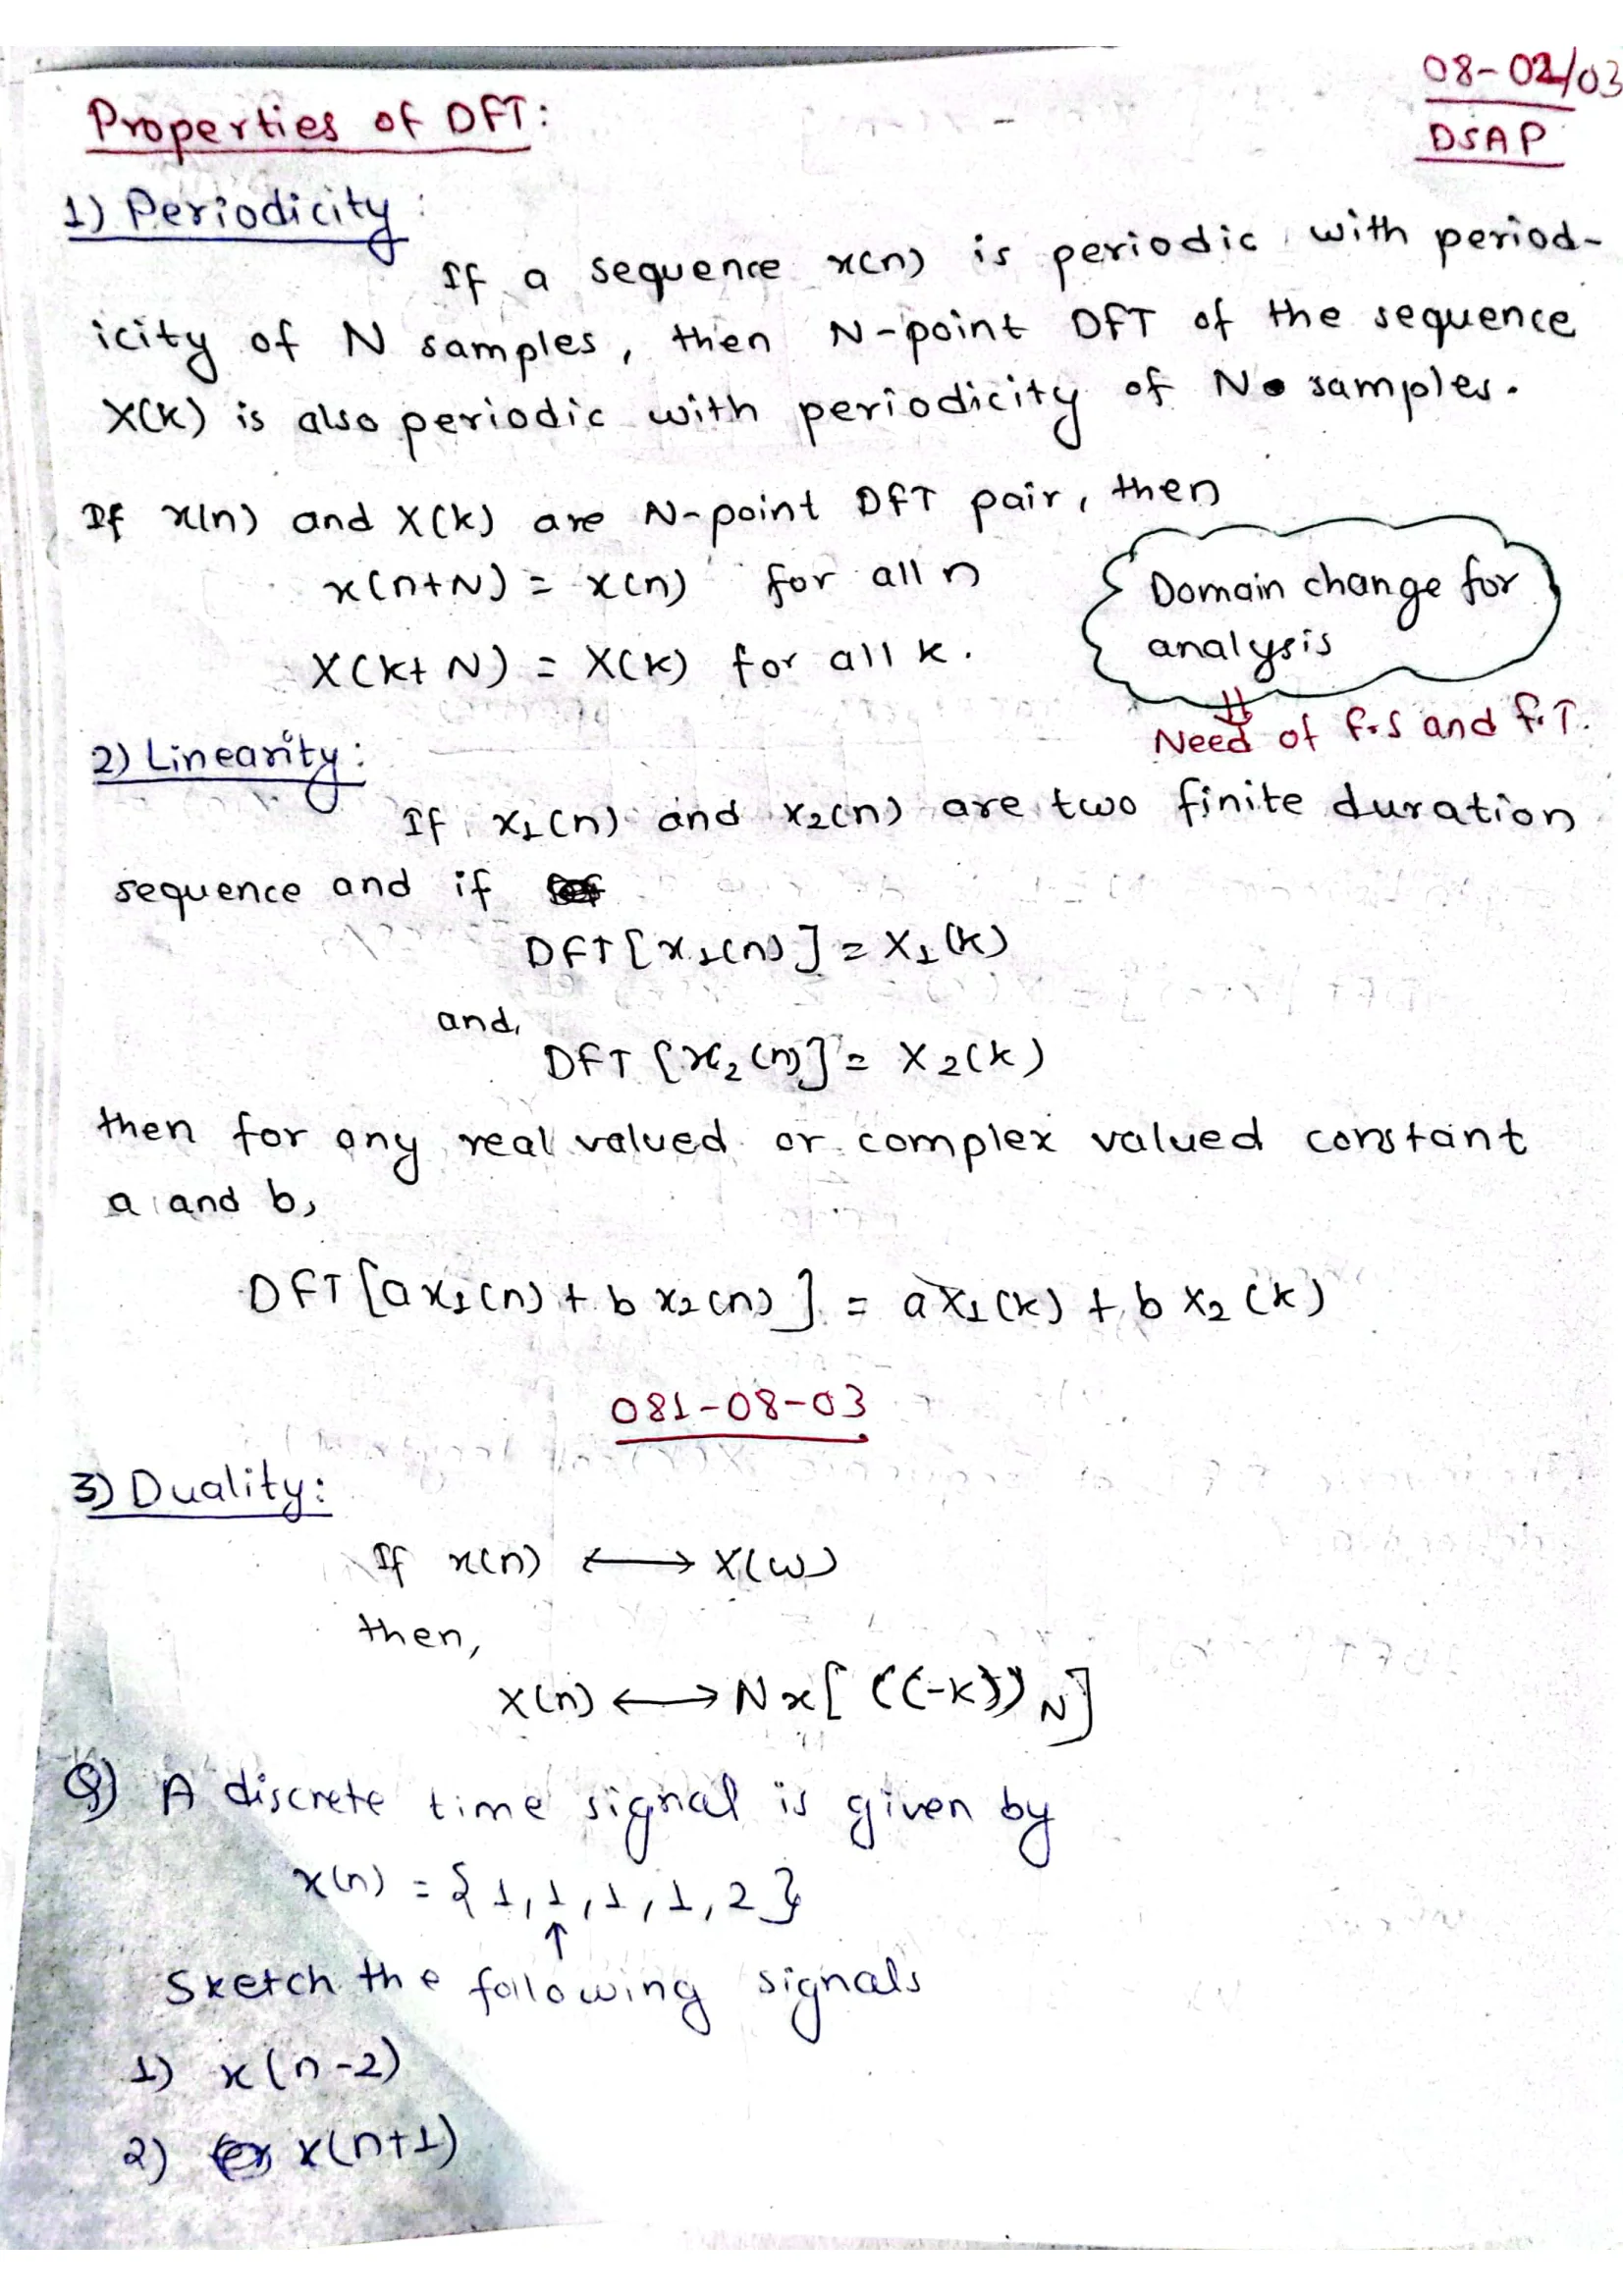 08-02/03
DSAP
Properties of DFT:
1) Periodicity:
If a sequence x(n) is periodic with period-
icity of N samples, then N-point DFT of the sequence
X(k) is also periodic with periodicity of N samples.
If x(n) and X(k) are N-point DFT pair, then
x(n+N) = x(n) for all n
X(k+N) = X(k) for all k.
Domain change for
analysis
⇓
Need of F.S and F.T.
2) Linearity:
If x1(n) and x2(n) are two finite duration
sequence and if
DFT[x1(n)] = X1(k)
and,
DFT[x2(n)] = X2(k)
then for any real valued or complex valued constant
a and b,
DFT[ax1(n) + b x2(n)] = aX1(k) + b X2(k)
081-08-03
3) Duality:
If x(n) ⟷ X(ω)
then,
X(n) ⟷ N x[((-k))N]
Q) A discrete time signal is given by
x(n) = {1, 1, 1, 1, 2}
↑
Sketch the following signals
1) x(n-2)
2) x(n+1)